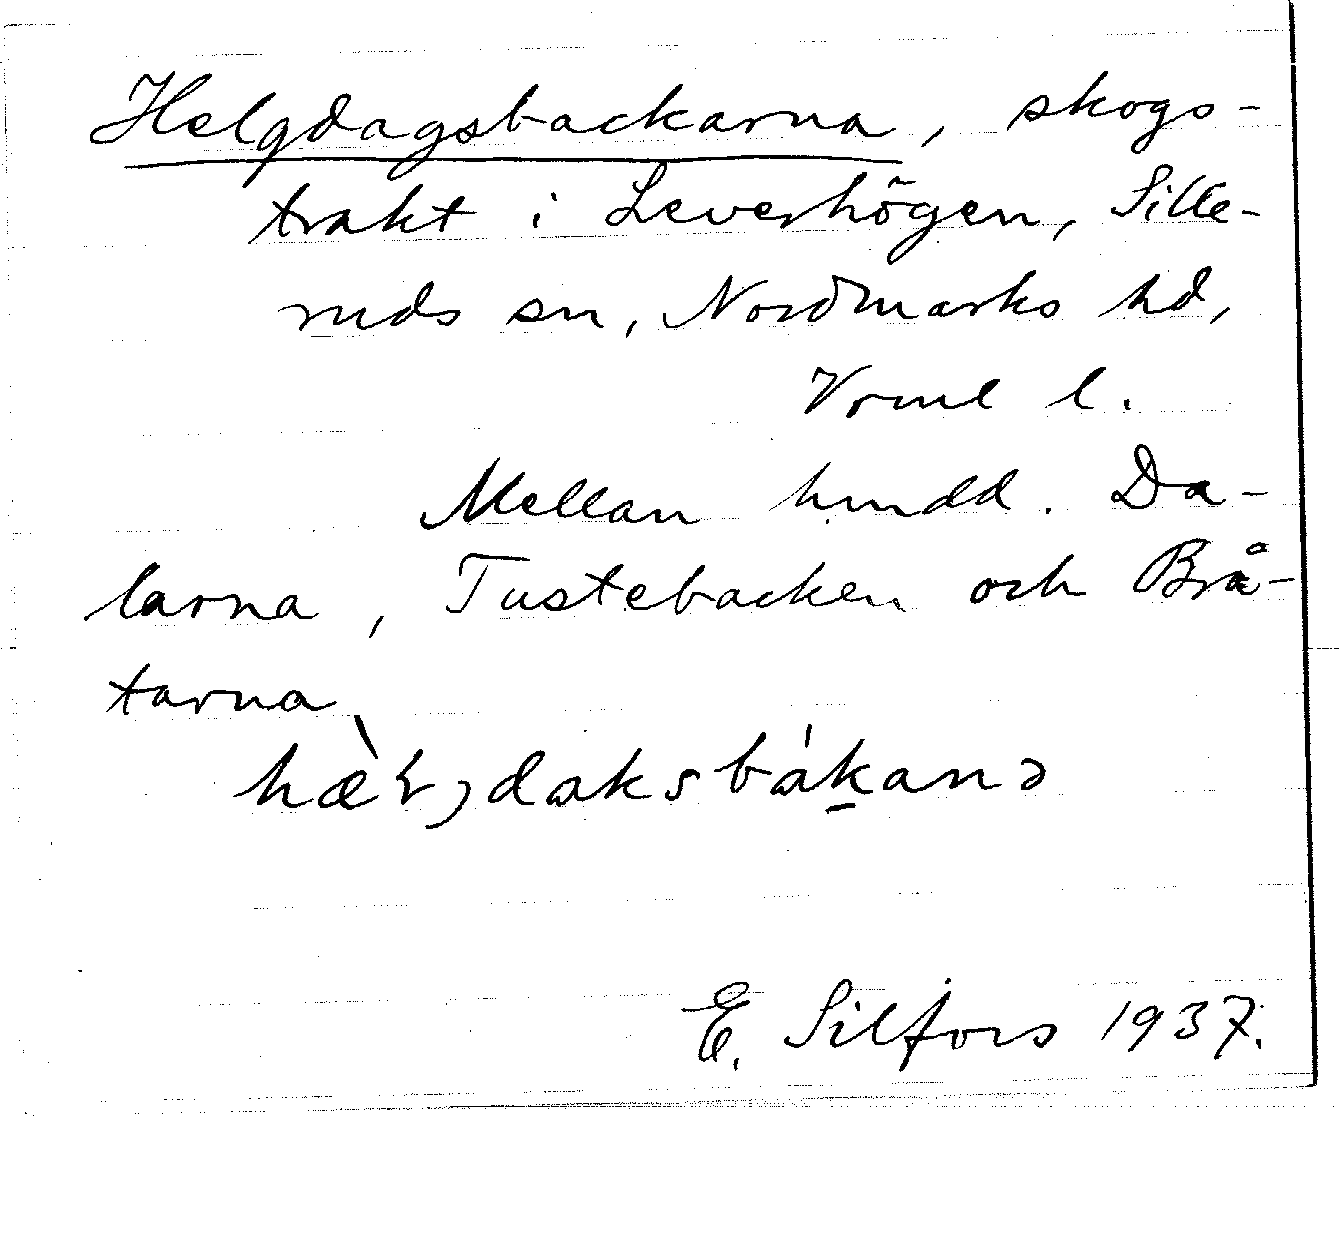 Helgdagsbackarna, skogs-
trakt i Leverhögen, Sille-
ruds sn, Nordmarks hd,
Vrml l.
Mellan hmdd. Da-
larna, Tustebacken och Brå-
tarna.
E. Silfors 1937.